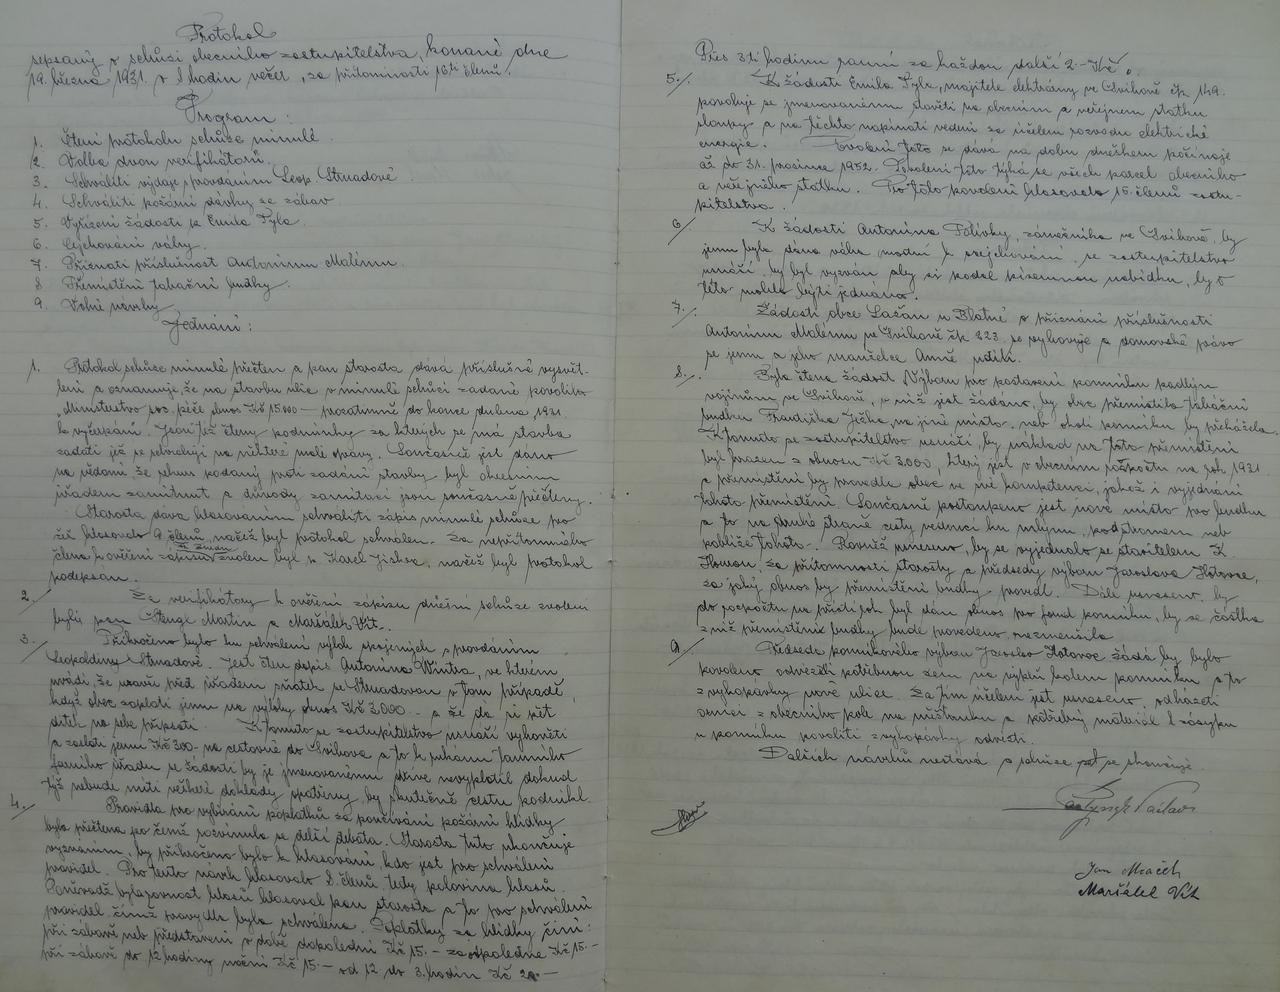 Protokol
sepsaný o schůzi obecního zastupitelstva, konané dne
19. března 1931. v 8 hodin večer, za přítomnosti 16ti členů.
Program:
1. Čtení protokolu schůze minulé.
2. Volba dvou verifikátorů.
3. Schváliti výdaje s provdáním Leop. Strnadové
4. Schváliti požární dávky ze zábav
5. Vyřízení žádosti p. Emila Pyla.
6. Cejchování váhy.
7. Přiznati příslušnost Antonínu Malému.
8 Přemístění tabáční budky.
9. Volné návrhy
Jednání:
1. Protokol schůze minulé přečten a pan starosta dává příslušné vysvět-
lení a oznamuje, že na stavbu ulice v minulé schůzi zadané povolilo
Ministerstvo soc. péče obnos Kč 15.000 – prozatímně do konce dubna 1931.
k vyčerpání. Jsou též čteny podmínky za kterých se má stavba
zadati již se schvalují na některé malé opravy. Současně jest dáno
na vědomí, že rekurs podaný proti zadání stavby byl okresním
úřadem zamítnut a důvody zamítací jsou současně přečteny.
Starosta dává hlasováním schváliti zápis minulé schůze pro
něž hlasovalo 9 členů, načež byl protokol schválen. Za nepřítomného
člena k ověření zápisu zvolen byl p. Karel Jicha, načež byl protokol
podepsán.
2. Za verifikátory k ověření zápisu dnešní schůze zvoleni
byli pan Štengl Martin a Maršálek Vít.
3. Přikročeno bylo ku schválení výloh spojených s provdáním
Leopoldiny Strnadové. Jest čten dopis Antonína Wintra, ve kterém
uvádí, že uzavře před úřadem sňatek se Strnadovou v tom případě
když obec zaplatí jemu na výlohy obnos Kč 3.000.– a že dá jí pět
dítek na sebe připsati. K tomuto se zastupitelstvo usnáší vyhověti
a zaslati jemu Kč 300.– na cestovné do Švihova a to k rukám tamního
farního úřadu se žádostí by je jmenovanému dříve nevyplatil dokud
týž nebude míti veškeré doklady opatřeny, by skutečně cestu podnikl.
4. Pravidla pro vybírání poplatků za používání požární hlídky
byla přečtena po čemž rozvinula se delší debata. Starosta tuto ukončuje
vyzváním, by přikročeno bylo k hlasování, kdo jest pro schválení
pravidel. Pro tento návrh hlasovalo 8. členů, tedy polovina hlasů.
Poněvadž byla rovnost hlasů hlasoval pan starosta a to pro schválení
pravidel čímž pravidla byla schválena. Poplatky za hlídky činí:
při zábavě neb představení v době dopolední Kč 15.– za odpoledne Kč 15.–
při zábavě do 12 hodiny noční Kč 15.– od 12 do 3. hodin Kč 20.–
Přes 3tí hodinu ranní za každou další 2.– Kč.
5. K žádosti Emila Pyla, majitele elektrárny ve Švihově čp. 149.
povoluje se jmenovanému stavěti na obecním a veřejném statku
sloupy a na těchto napínati vedení za účelem rozvodu elektrické
energie. Svolení toto se dává na dobu dneškem počínaje
až do 31. prosince 1952. Povolení toto týká se všech parcel obecního
a veřejného statku. Pro toto povolení hlasovalo 15. členů zastu-
pitelstva.
6 K žádosti Antonína Polívky, zámečníka ve Švihově, by
jemu byla dána váha mostní k cejchování se zastupitelstvo
usnáší by byl vyzván aby si podal písemnou nabídku, by o
této mohlo býti jednáno.
7. Žádosti obce Lažan u Blatné o přiznání příslušnosti
Antonínu Malému ve Švihově čp. 223. se vyhovuje a domovské právo
se jemu a jeho manželce Anně udílí.
8. Byla čtena žádost Výboru pro postavení pomníku padlým
vojínům ve Švihově, v níž jest žádáno, by obec přemístila tabáční
budku Františka Ježka na jiné místo, neb okolí pomníku by překážela.
K tomuto se zastupitelstvo usnáší by náklad na toto přemístění
byl hrazen z obnosu Kč 3.000, který jest v obecním rozpočtu na rok 1931
a přemístění by provedla obec ve své kompetenci, jakož i vyjednání
tohoto přemístění. Současně postoupeno jest nové místo pro budku
a to na druhé straně cesty vedoucí ku mlýnu, pod stromem neb
poblíže tohoto. Rovněž usneseno, by se vyjednalo se stavitelem K.
za přítomnosti starosty a předsedy výboru Jaroslava Hotovce,
za jaký obnos by přemístění budky provedl. Dále usneseno, by
do rozpočtu na příští rok byl dán obnos pro fond pomníku, by se částka
z níž přemístění budky bude provedeno, nezmenšila.
9 Předseda pomníkového výboru Jaroslav Hotovec žádá by bylo
povoleno odvézti potřebnou zem na výplň kolem pomníku a to
z vykopávky nové ulice. Za tím účelem jest usneseno, odházeti
ornici z obecního pole na můstku a potřebný materiál k zásypu
u pomníku povoliti z vykopávky odvézti.
Dalších návrhů nestává a schůze pak se skončuje.
Václav
Jan Macek
Maršálek Vít